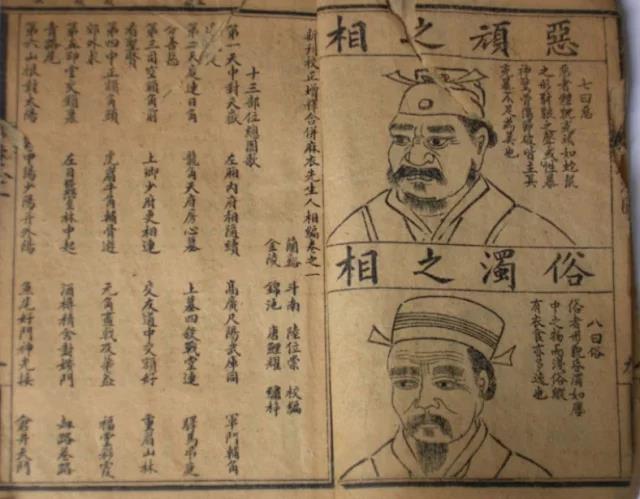 惡頑之相
七曰惡
惡者體貌兇頑如蛇鼠
之形豺狼之聲或性暴
神驚骨傷節破皆主其
兇暴不足為美也
俗濁之相
八曰俗
俗者形貌昏濁如塵
中之物而淺俗縱
有衣食亦多迍也
新刊校正增釋合併麻衣先生人相編卷之一
蘭谿 斗南 陸位崇 校編
金陵 錦池 唐鯉耀 繡梓
十三部位總圖歌
第一天中對天嶽 左廂內府相隨續 高廣尺陽武庫同 軍門輔角
第二天庭連日角 龍角天府房心墓 上墓四殺戰堂連 驛馬弔庭
分善惡
第三司空額角前 上卿少府更相連 交友道中交額好 重眉山林
看聖賢
第四中正額角頭 虎眉牛角輔骨遊 元角斧戟及華蓋 福堂彩霞
郊外求
第五印堂交鎖裏 左目蠶室林中起 酒樽精舍對嬪門 劫路巷路
青路尾
第六山根對太陽 中陽少陽并外陽 魚尾奸門神光接 倉井天門